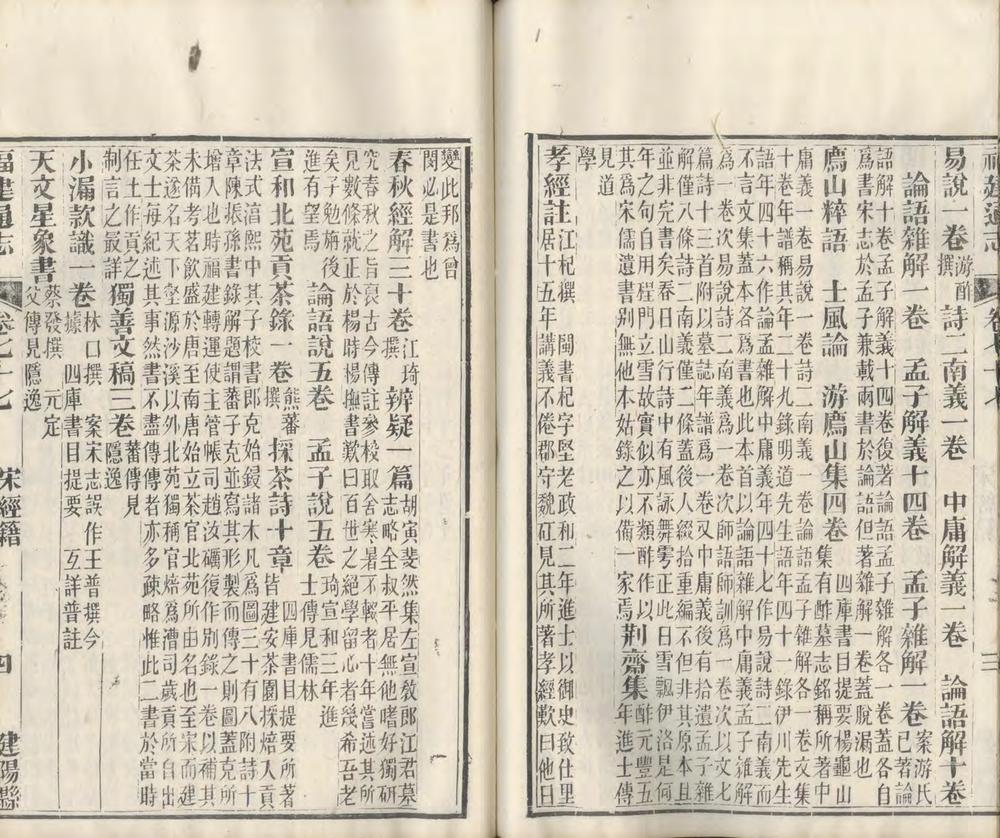 福建通志 卷六十七 三
易說一卷 游酢撰 詩二南義一卷 中庸解義一卷 論語解十卷
論語雜解一卷 孟子解義十四卷 孟子雜解一卷 案游氏已著論
語解十卷孟子解義十四卷後著論語孟子雜解各一卷蓋各自
爲書宋志於孟子兼載兩書於論語但著雜解一卷蓋脫漏也
廌山粹語 士風論 游廌山集四卷 四庫書目提要楊龜山集有酢墓志銘稱所著中
庸義一卷易說一卷詩二南義一卷論語孟子雜解各一卷文集
十卷年譜稱其年二十九錄明道先生語年四十一錄伊川先生
語年四十六作論孟雜解中庸義年四十七作易說詩二南義而
不言文集蓋本各爲書也此本首以論語雜解中庸義孟子雜解
爲一卷次易說詩二南義爲一卷次師語師訓爲一卷次以文七
篇詩十三首附以墓誌年譜爲一卷又中庸義後有拾遺孟子雜
解僅八條詩二南義僅二條蓋後人綴拾重編不但非其原本且
並非完書矣春日山行詩中有風詠舞雩正此日雪飄伊洛是何
年之句自用程門立雪故實似亦不類酢作以
其爲宋儒遺書別無他本姑錄之以備一家焉 荆齋集 酢元豐五年進士傳
見道學
孝經註 江杞撰 閩書杞字堅老政和二年進士以御史致仕里
居十五年講義不倦郡守魏矼見其所著孝經歎曰他日
變此邦爲曾
閔必是書也
春秋經解三十卷 江琦撰 辨疑一篇 胡寅斐然集左宣敎郎江君墓志略全叔平居無他嗜好獨研
究春秋之旨裒古今傳註參校取舍寒暑不輟者十年嘗述其所
見數條就正於楊時楊撫書歎曰百世之絕學留心者幾希吾老
矣子勉旃後
進有望焉 論語說五卷 孟子說五卷 琦宣和三年進士傳見儒林
宣和北苑貢茶錄一卷 熊蕃撰 採茶詩十章 四庫書目提要所著皆建安茶園採焙入貢
法式淳熙中其子校書郎克始鋟諸木凡爲圖三十有八附詩十
章陳振孫書錄解題謂蕃子克並寫其形製而傳之則圖蓋克所
增入也時福建轉運使主管帳司趙汝礪復作別錄一卷以補其
未備考茗飲盛於唐至南唐始立茶官北苑所由名也至宋而建
茶遂名天下壑源沙溪以外北苑獨稱官焙爲漕司歲貢所自出
文士每紀述其事然書不盡傳傳者亦多疎略惟此二書於當時
任土作貢之
制言之最詳 獨善文稿三卷 蕃傳見隱逸
小漏款識一卷 林口撰 案宋志誤作王普撰今據四庫書目提要 互詳普註
天文星象書 蔡發撰 元定父傳見隱逸
福建通志 卷六十七 宋經籍 四 建陽縣